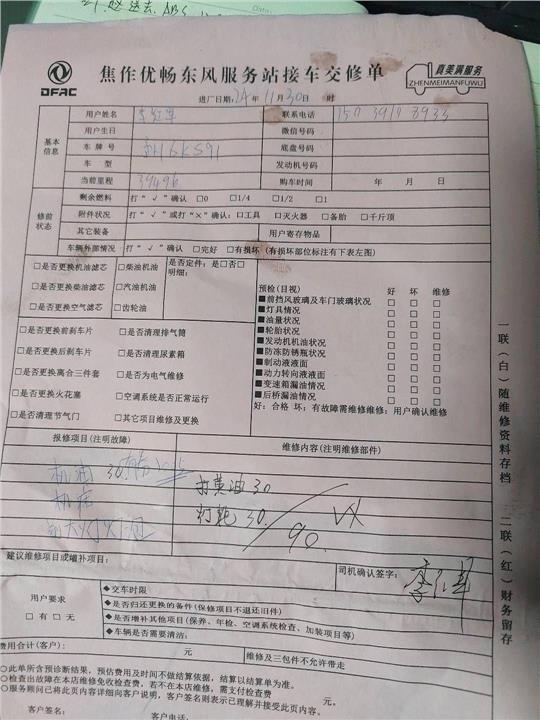 DFAC
焦作优畅东风服务站接车交修单
真美满服务
ZHENMEIMANFUWU
进厂日期:24年11月30日 时
基本信息
用户姓名 联系电话
用户生日 微信号码
车牌号 底盘号码
车型 发动机号码
当前里程 39496 购车时间 年 月 日
修前状态
剩余燃料 打“√”确认 □0 □1/4 □1/2 □1
附件状况 打“√”或打“×”确认:□工具 □灭火器 □备胎 □千斤顶
其它装备 用户寄存物品
车辆外部情况 打“√”确认 □完好 □有损坏(有损坏部位标注有下表左图)
□是否更换机油滤芯 □柴油机油 是否定件:是□否□
明细:
□是否更换柴油滤芯 □汽油机油
□是否更换空气滤芯 □齿轮油
□是否更换前刹车片 □是否清理排气筒
□是否更换后刹车片 □是否清理尿素箱
□是否更换离合三件套 □是否为电气维修
□是否更换火花塞 □空调系统是否正常运行
□是否清理节气门 □其它项目维修及更换
预检(目视) 好 坏 维修
■前挡风玻璃及车门玻璃状况 □ □ □
■灯具情况 □ □ □
■油量状况 □ □ □
■轮胎状况 □ □ □
■发动机机油状况 □ □ □
■防冻防锈瓶状况 □ □ □
■制动液液面 □ □ □
■动力转向液液面 □ □ □
■变速箱漏油情况 □ □ □
■后桥漏油情况 □ □ □
好:合格 坏:有故障需维修维修:用户确认维修
报修项目(注明故障) 维修内容(注明维修部件)
机油 30.
打黄油 30
打靶 30.
90.
建议维修项目或增补项目:
司机确认签字:
用户要求
□有 □无
◆交车时限
◆是否归还更换的备件(保修项目不退还旧件)
◆是否增补其他项目(保养、年检、空调系统检查、加装项目等)
◆车辆是否需要清洁:
费用合计(客户): 元 维修及三包件不允许带走
○此单所含预诊断结果,预估费用及时间不做结算依据,结算以结算单为准。
○检查出故障在本店维修免收检查费,若不在本店维修,需支付检查费 元。
○服务顾问已将此页内容详细向客户说明,客户签名则表示已理解并接受此页内容。
客户签名: 客户电话:
一联(白)随维修资料存档 二联(红)财务留存